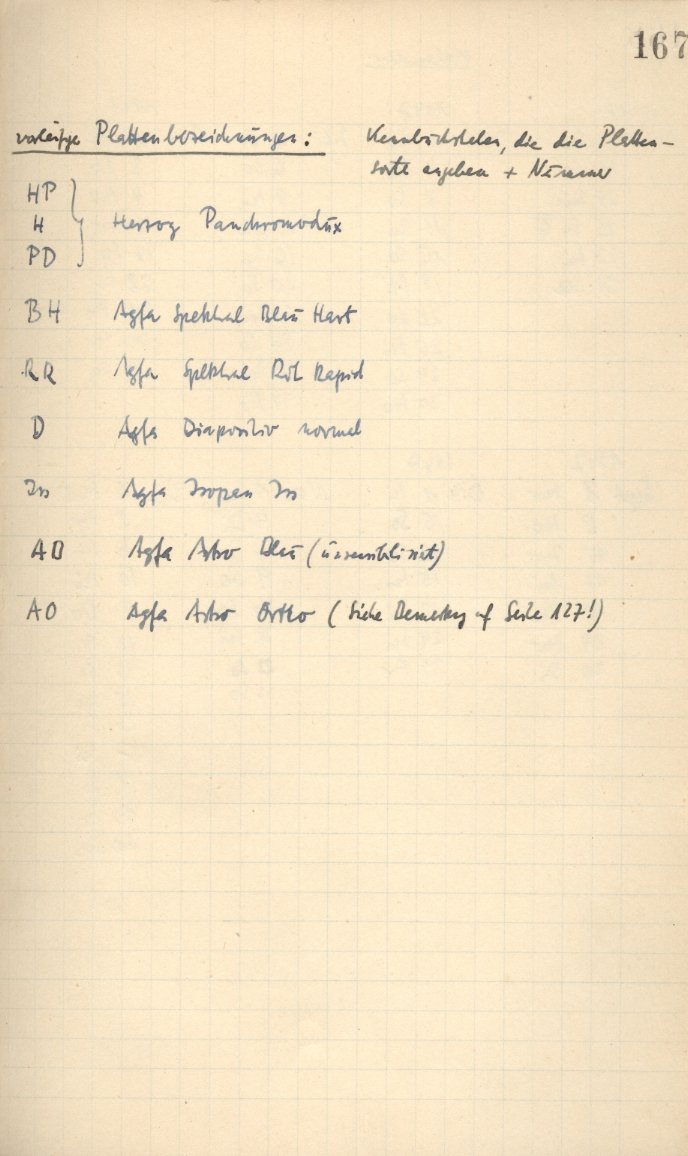 167
vorläufige Plattenbezeichnungen: Kennbuchstaben, die die Platten-
sorte angeben + Nummer
HP
H Herzog Panchromodux
PD
BH Agfa Spektral Blau Hart
RR Agfa Spektral Rot Rapid
D Agfa Diapositiv normal
Iss Agfa Isopan Iss
AB Agfa Astro Blau (unsensibilisiert)
AO Agfa Astro Ortho (Siehe Bemerkung auf Seite 127!)